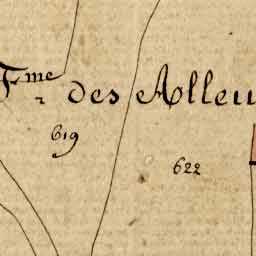 Fme des Alleu
619
622